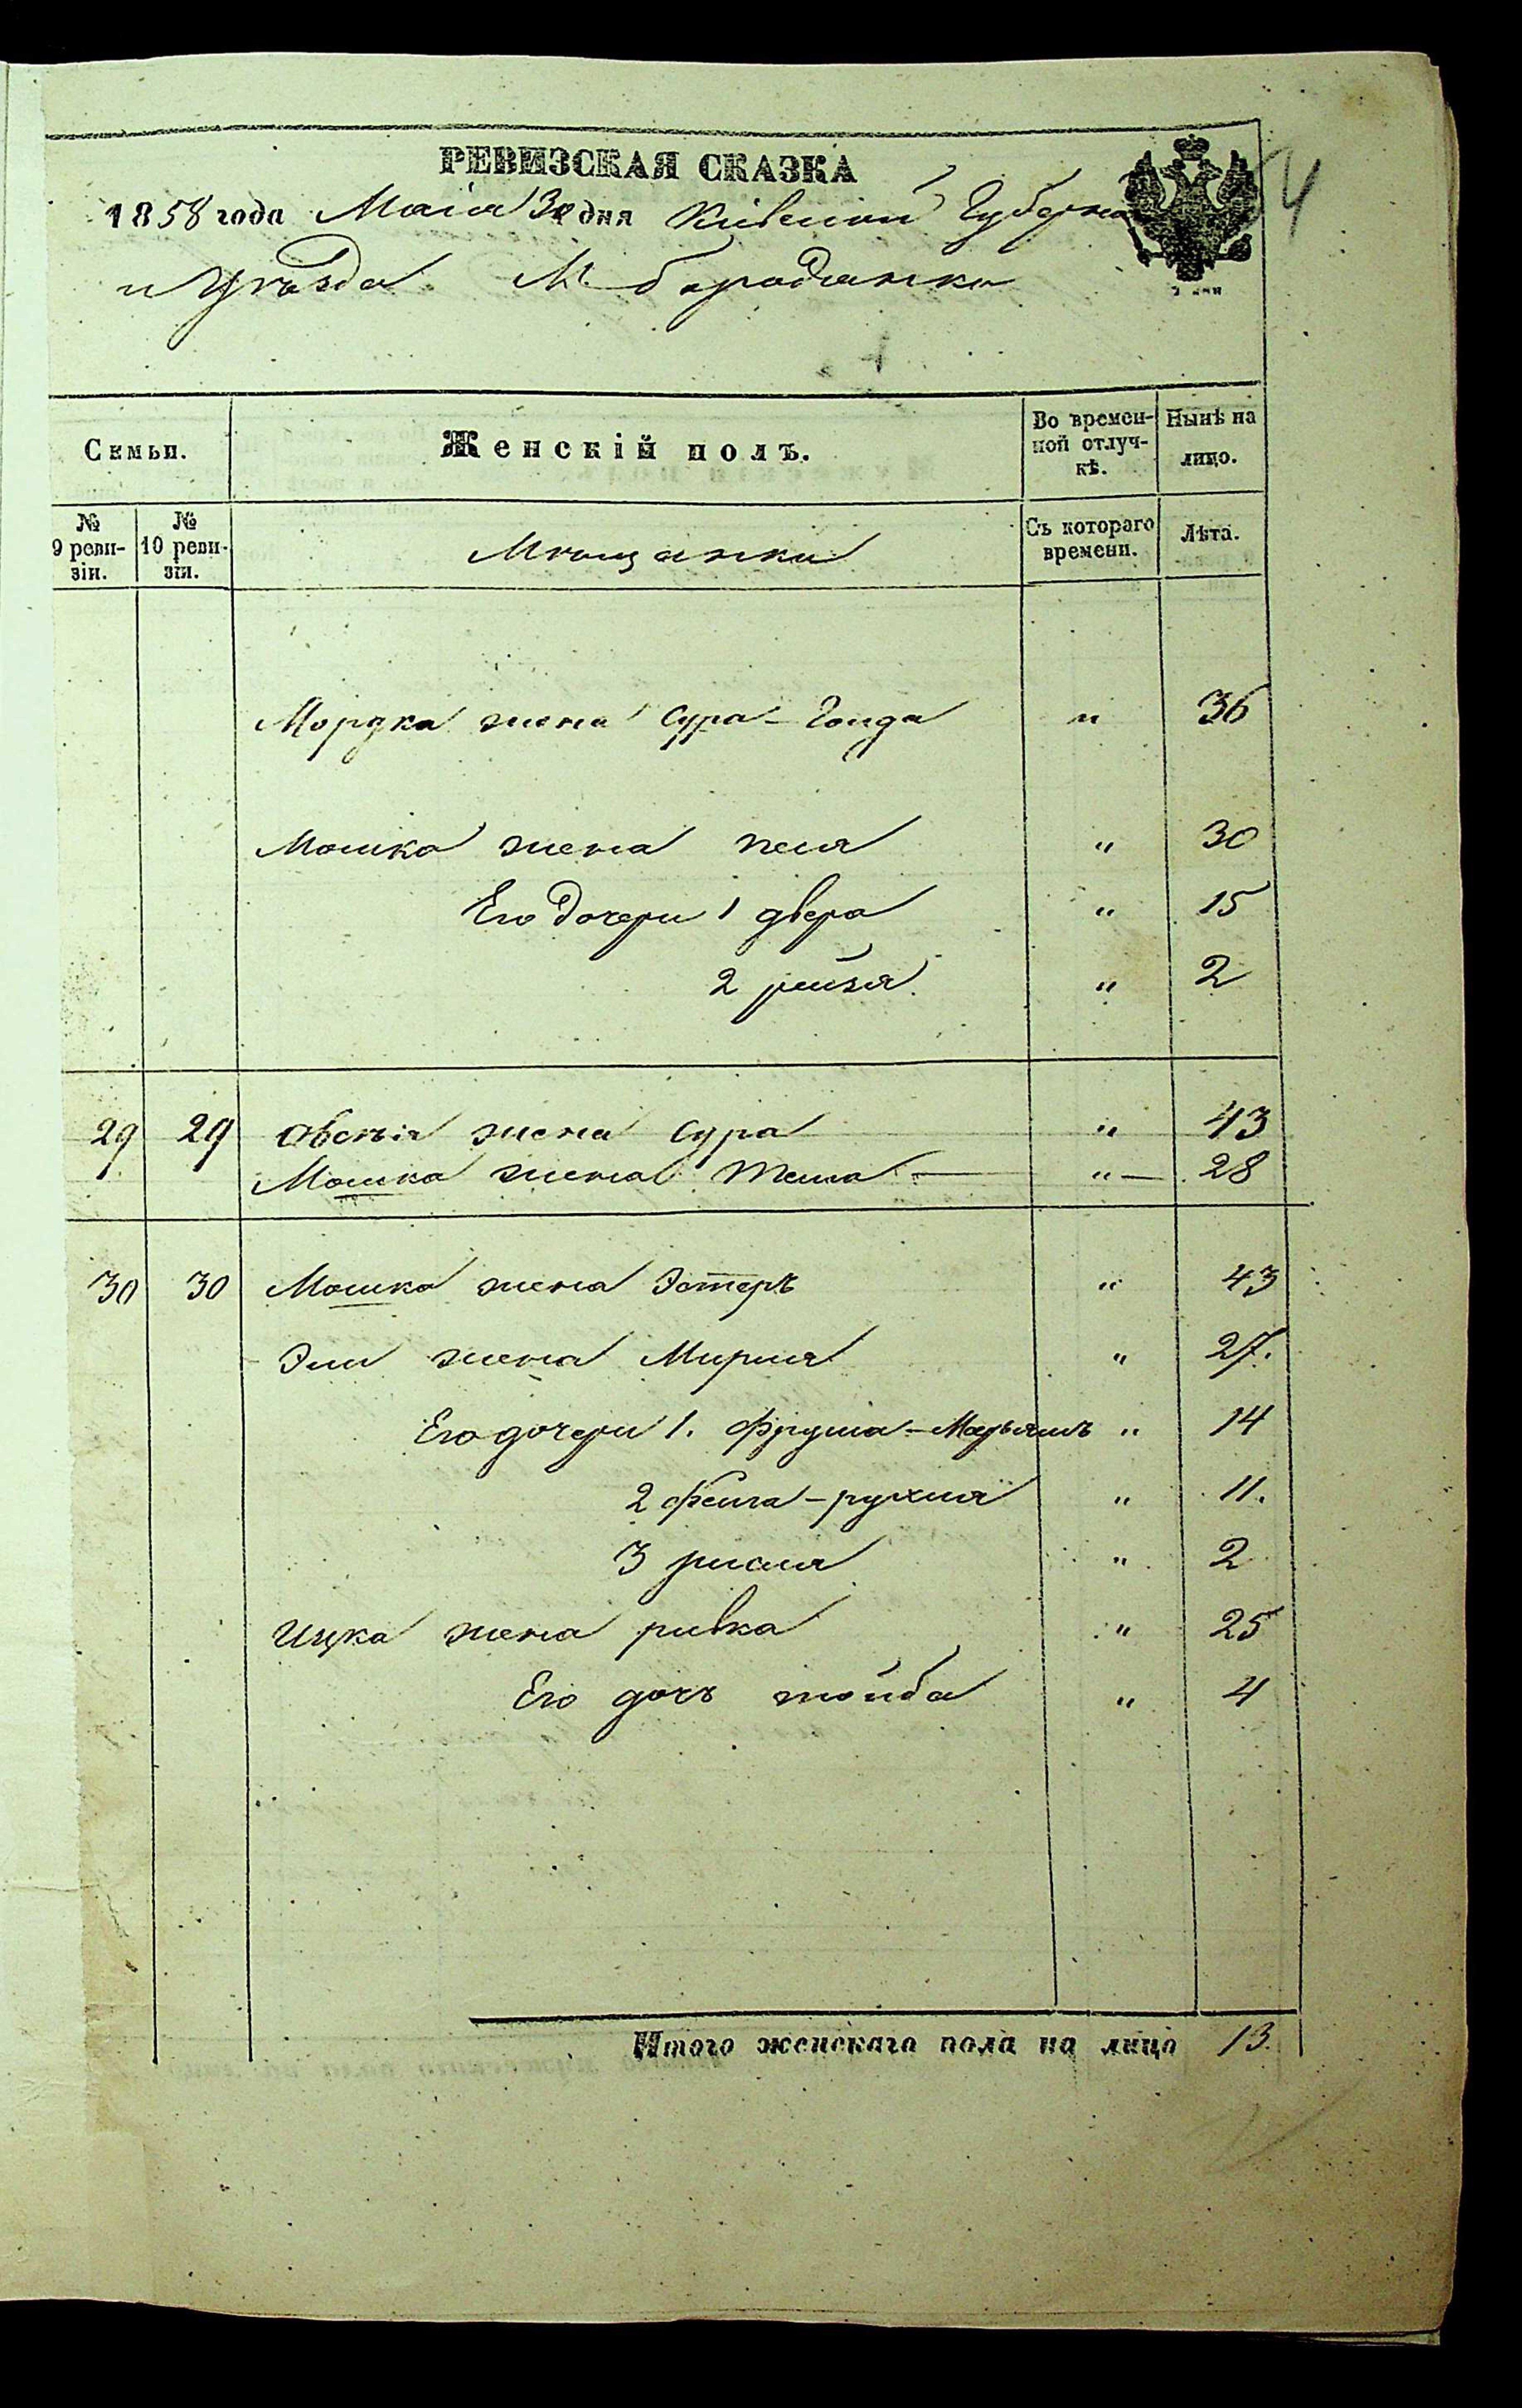 РЕВИЗСКАЯ СКАЗКА
4
1858 года Маія 30 дня Кіевской Губерніи
и Уѣзда М. бородянки
Семьи.
Женскій полъ.
Во времен-
ной отлуч-
кѣ.
Нынѣ на
лицо.
№
9 реви-
зіи.
№
10 реви-
зіи.
Мѣщанки
Съ котораго
времени.
Лѣта.
Мордка жена Сура-Гонда " 36
Мошка жена песя " 30
Его дочери 1 двера " 15
2 рейзя " 2
29 29 Овсѣія жена Сура " 43
Мошка жена Тема " 28
30 30 Мошка жена Эстеръ " 43
Эли жена Мириля " 27.
Его дочери 1. Фрума-Марьямъ " 14
2 Фейга-рухля " 11.
3 рисля " 2
Ицка жена ривка " 25
Его дочь тойба " 4
Итого женскаго пола на лицо 13.